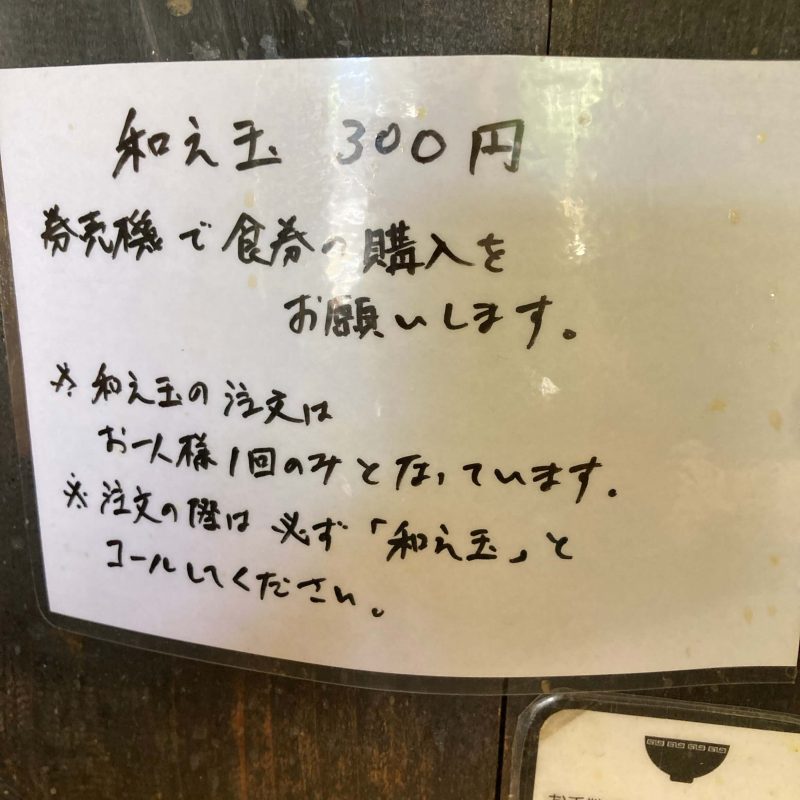 和え玉 300円
券売機で食券の購入を
お願いします。
※和え玉の注文は
お一人様1回のみとなっています。
※注文の際は必ず「和え玉」と
コールしてください。